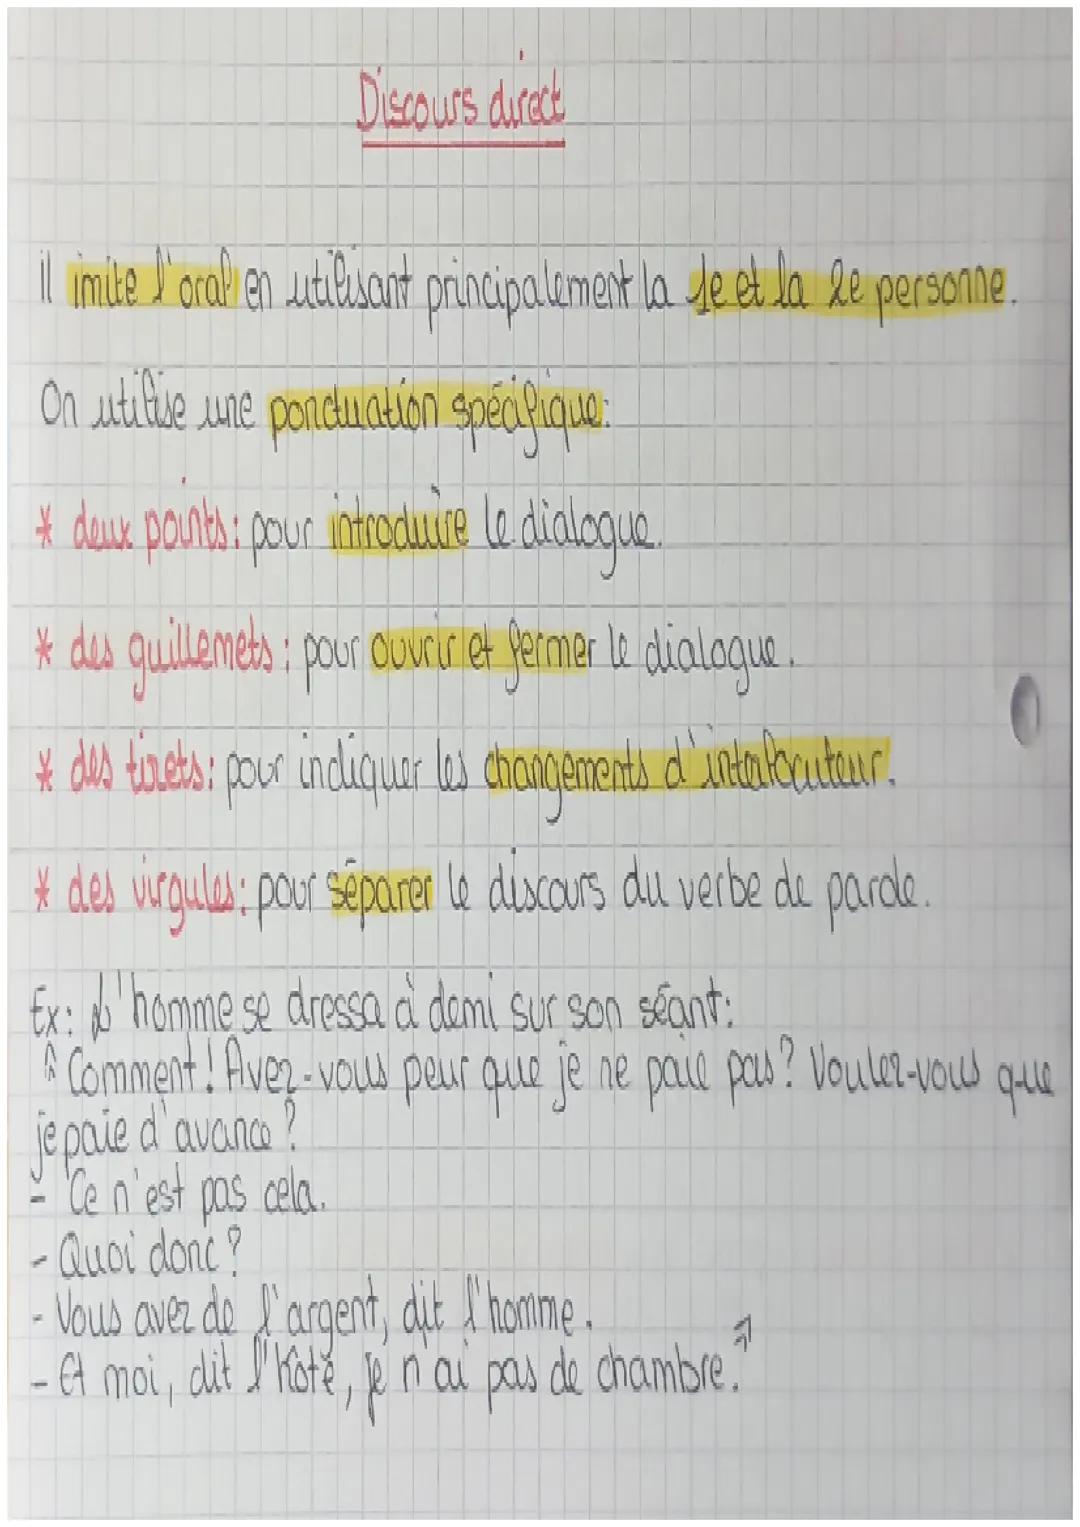 Discours direct
il imite l'oral en utilisant principalement la 1e et la 2e personne.
On utilise une ponctuation spécifique:
* deux points: pour introduire le dialogue.
* des guillemets: pour ouvrir et fermer le dialogue.
* des tirets: pour indiquer les changements d'interlocuteur.
* des virgules: pour séparer le discours du verbe de parole.
Ex: L'homme se dressa à demi sur son séant:
« Comment! Avez-vous peur que je ne paie pas? Voulez-vous que
je paie d'avance?
- Ce n'est pas cela.
- Quoi donc?
- Vous avez de l'argent, dit l'homme.
- Et moi, dit l'hôte, je n'ai pas de chambre. »